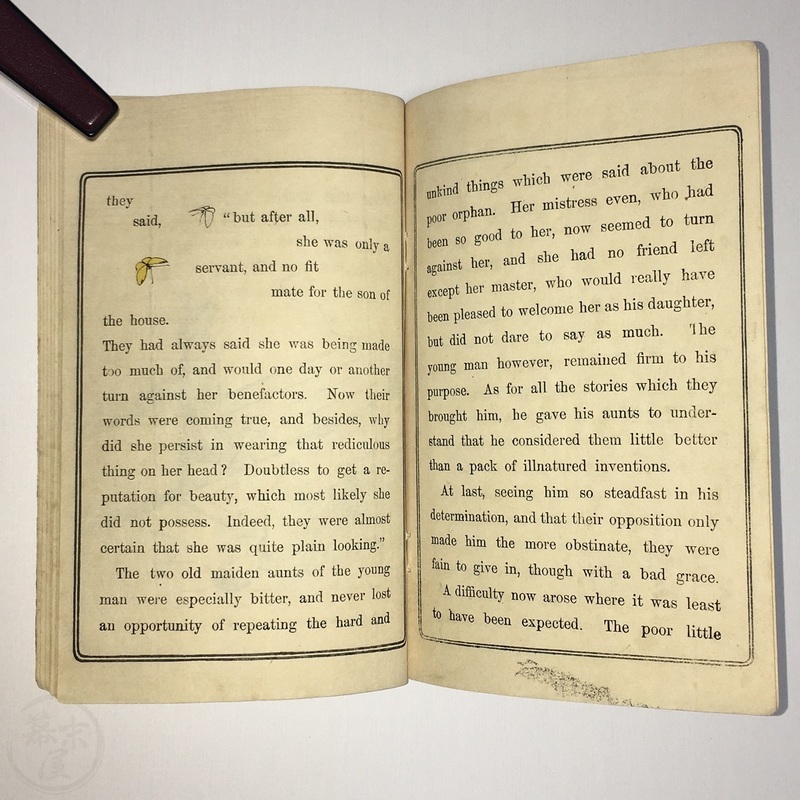 they
said, "but after all,
she was only a
servant, and no fit
mate for the son of
the house.
They had always said she was being made
too much of, and would one day or another
turn against her benefactors. Now their
words were coming true, and besides, why
did she persist in wearing that rediculous
thing on her head? Doubtless to get a re-
putation for beauty, which most likely she
did not possess. Indeed, they were almost
certain that she was quite plain looking."
The two old maiden aunts of the young
man were especially bitter, and never lost
an opportunity of repeating the hard and
unkind things which were said about the
poor orphan. Her mistress even, who had
been so good to her, now seemed to turn
against her, and she had no friend left
except her master, who would really have
been pleased to welcome her as his daughter,
but did not dare to say as much. The
young man however, remained firm to his
purpose. As for all the stories which they
brought him, he gave his aunts to under-
stand that he considered them little better
than a pack of illnatured inventions.
At last, seeing him so steadfast in his
determination, and that their opposition only
made him the more obstinate, they were
fain to give in, though with a bad grace.
A difficulty now arose where it was least
to have been expected. The poor little
幕末屋